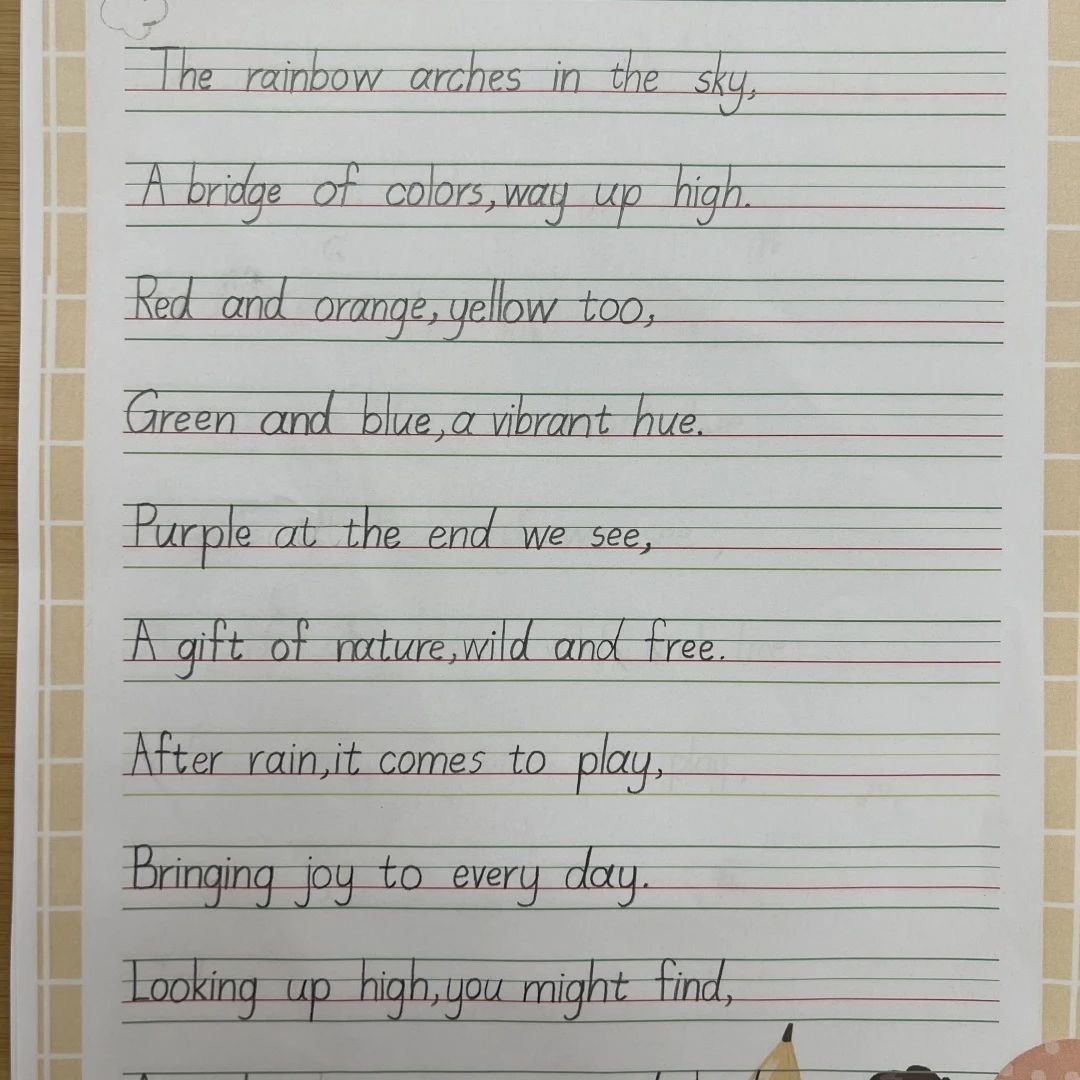 The rainbow arches in the sky,
A bridge of colors,way up high.
Red and orange,yellow too,
Green and blue,a vibrant hue.
Purple at the end we see,
A gift of nature,wild and free.
After rain,it comes to play,
Bringing joy to every day.
Looking up high,you might find,